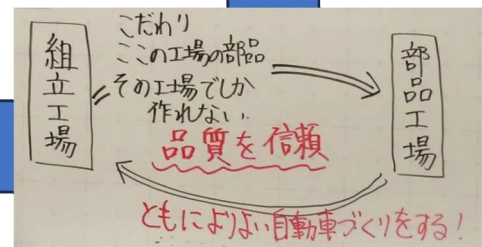 組立工場
こだわり
ここの工場の部品
その工場でしか
作れない。
品質を信頼
部品工場
ともによりよい自動車づくりをする!